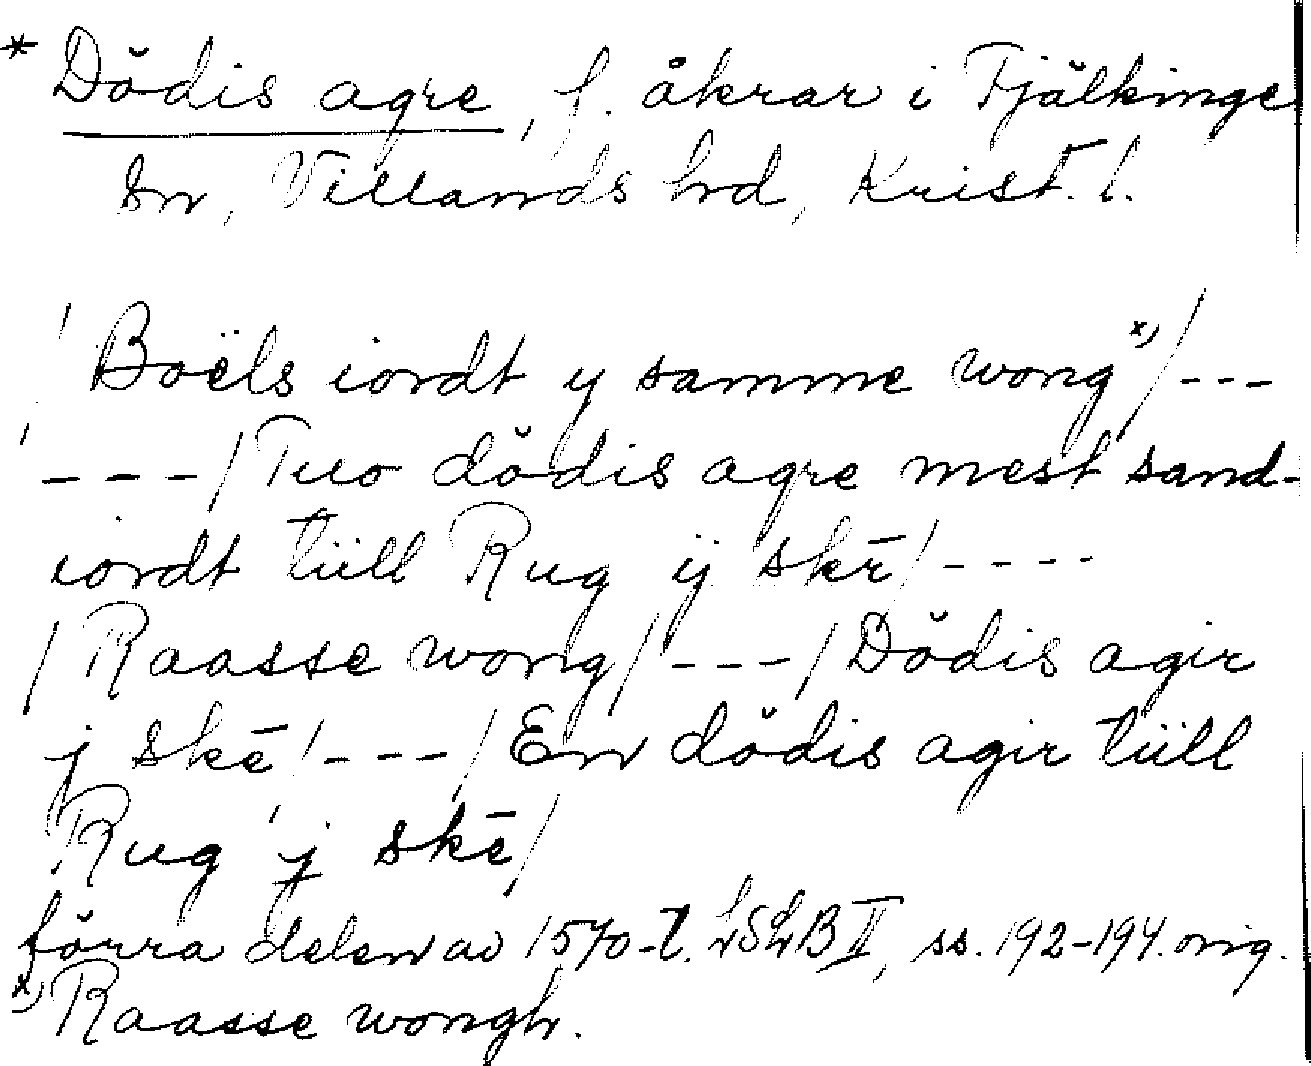 * Dödis agre, f. åkrar i Fjälkinge
sn, Villands hd, Krist. l.
/ Boëls iordt y samme wong x) / ---
--- / Tuo dödis agre mest sand-
iordt tiill Rug ÿ skē / ----
/ Raasse wong / --- / Dödis agir
j skē / --- / En dödis agir tiill
Rug j skē /
förra delen av 1570-t. LSLB II, ss. 192-194. orig.
x) Raasse wongh.